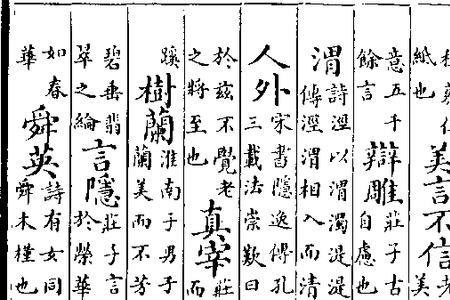 紙也
美言不信
老
美
意五千
餘言
辯雕
莊子古
自慮也
渭
詩涇以渭濁湜湜
傳涇渭相入而清
人外
宋書隱逸傳孔
三載法崇歎曰
於茲不覺老
之將至也
真宰
莊
而
蹊
樹蘭
淮南子男子
蘭美而不芳
碧垂翡
翠之綸
言隱
莊子言
於榮華
如春
華
舜英
詩有女同
舜木槿也